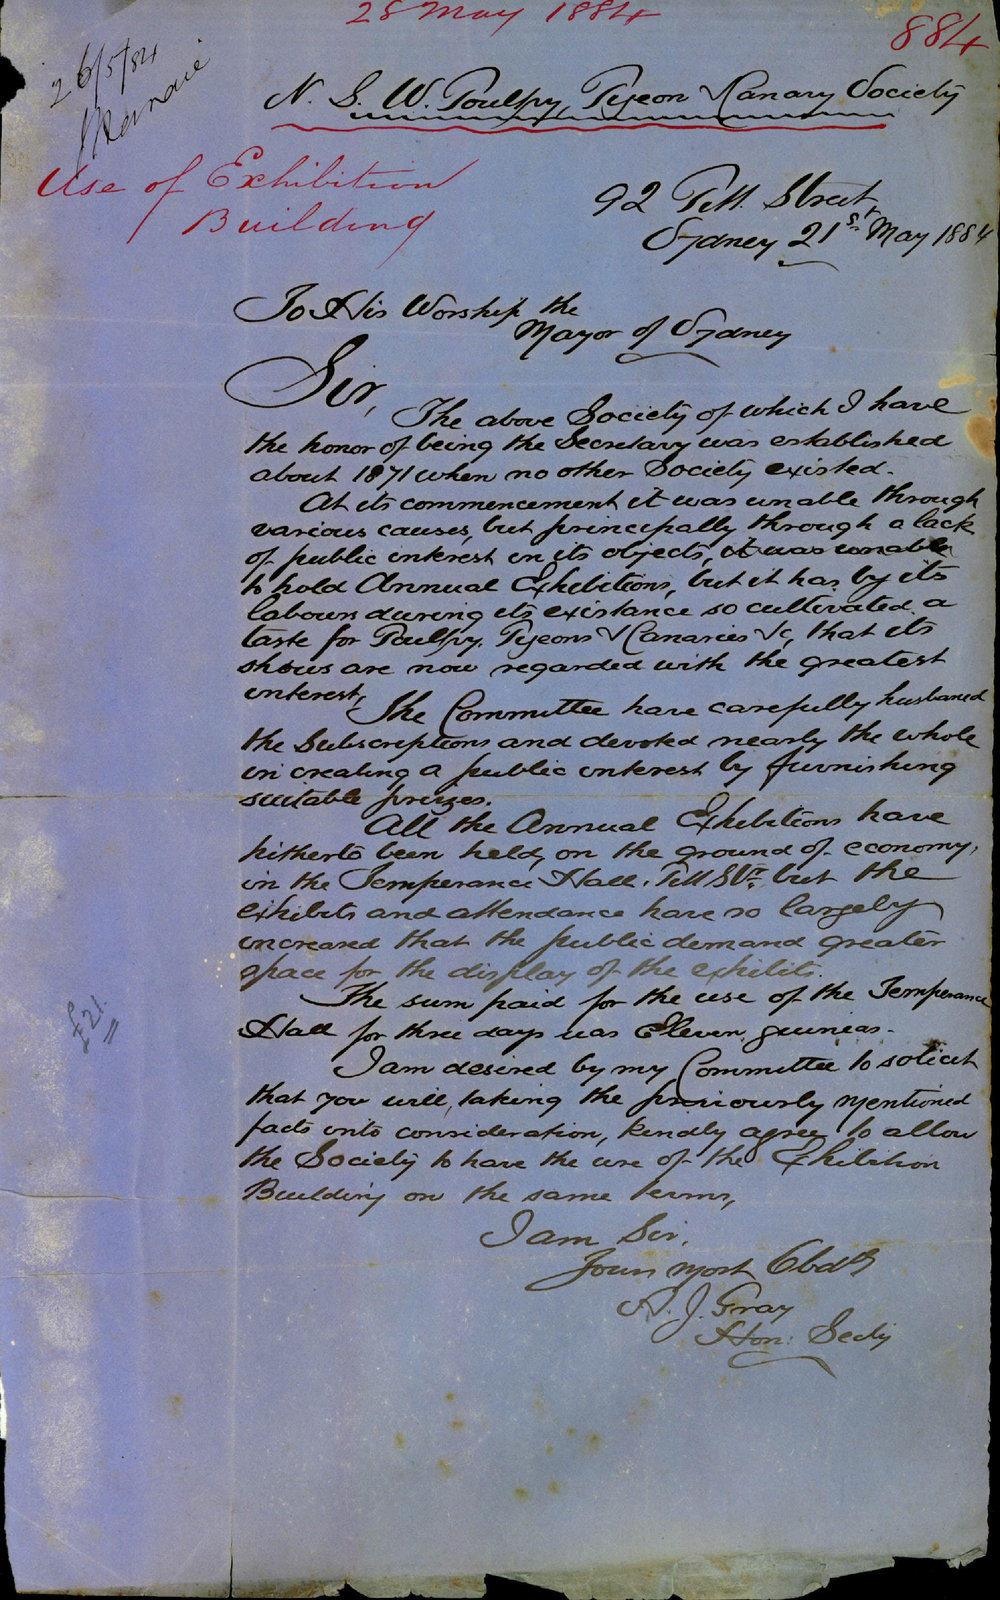 28 May 1884
884
26/5/84
N. S. W. Poultry, Pigeon & Canary Society
Use of Exhibition
Building
92 Pitt. Street
Sydney 21st May 1884
To His Worship the
Mayor of Sydney
Sir,
The above Society of which I have
the honor of being the Secretary was established
about 1871 when no other Society existed.
At its commencement it was unable through
various causes, but principally through a lack
of public interest in its objects, it was unable
to hold Annual Exhibitions, but it has by its
labours during its existance so cultivated a
taste for Poultry, Pigeons & Canaries &c, that its
shows are now regarded with the greatest
interest,
The Committee have carefully husbaned
the Subscriptions and devoted nearly the whole
in creating a public interest by furnishing
suitable prizes.
All the Annual Exhibitions have
hitherto been held, on the ground of economy,
in the Temperance Hall, Pitt St, but the
exhibits and attendance have so largely
increased that the public demand greater
space for the display of the exhibits.
The sum paid for the use of the Temperance
Hall for three days was Eleven guineas.
£21
I am desired by my Committee to solicit
that you will, taking the previously mentioned
facts into consideration, kindly agree to allow
the Society to have the use of the Exhibition
Building on the same terms,
I am Sir,
Yours most Obdt
A. J. Gray
Hon: Secty